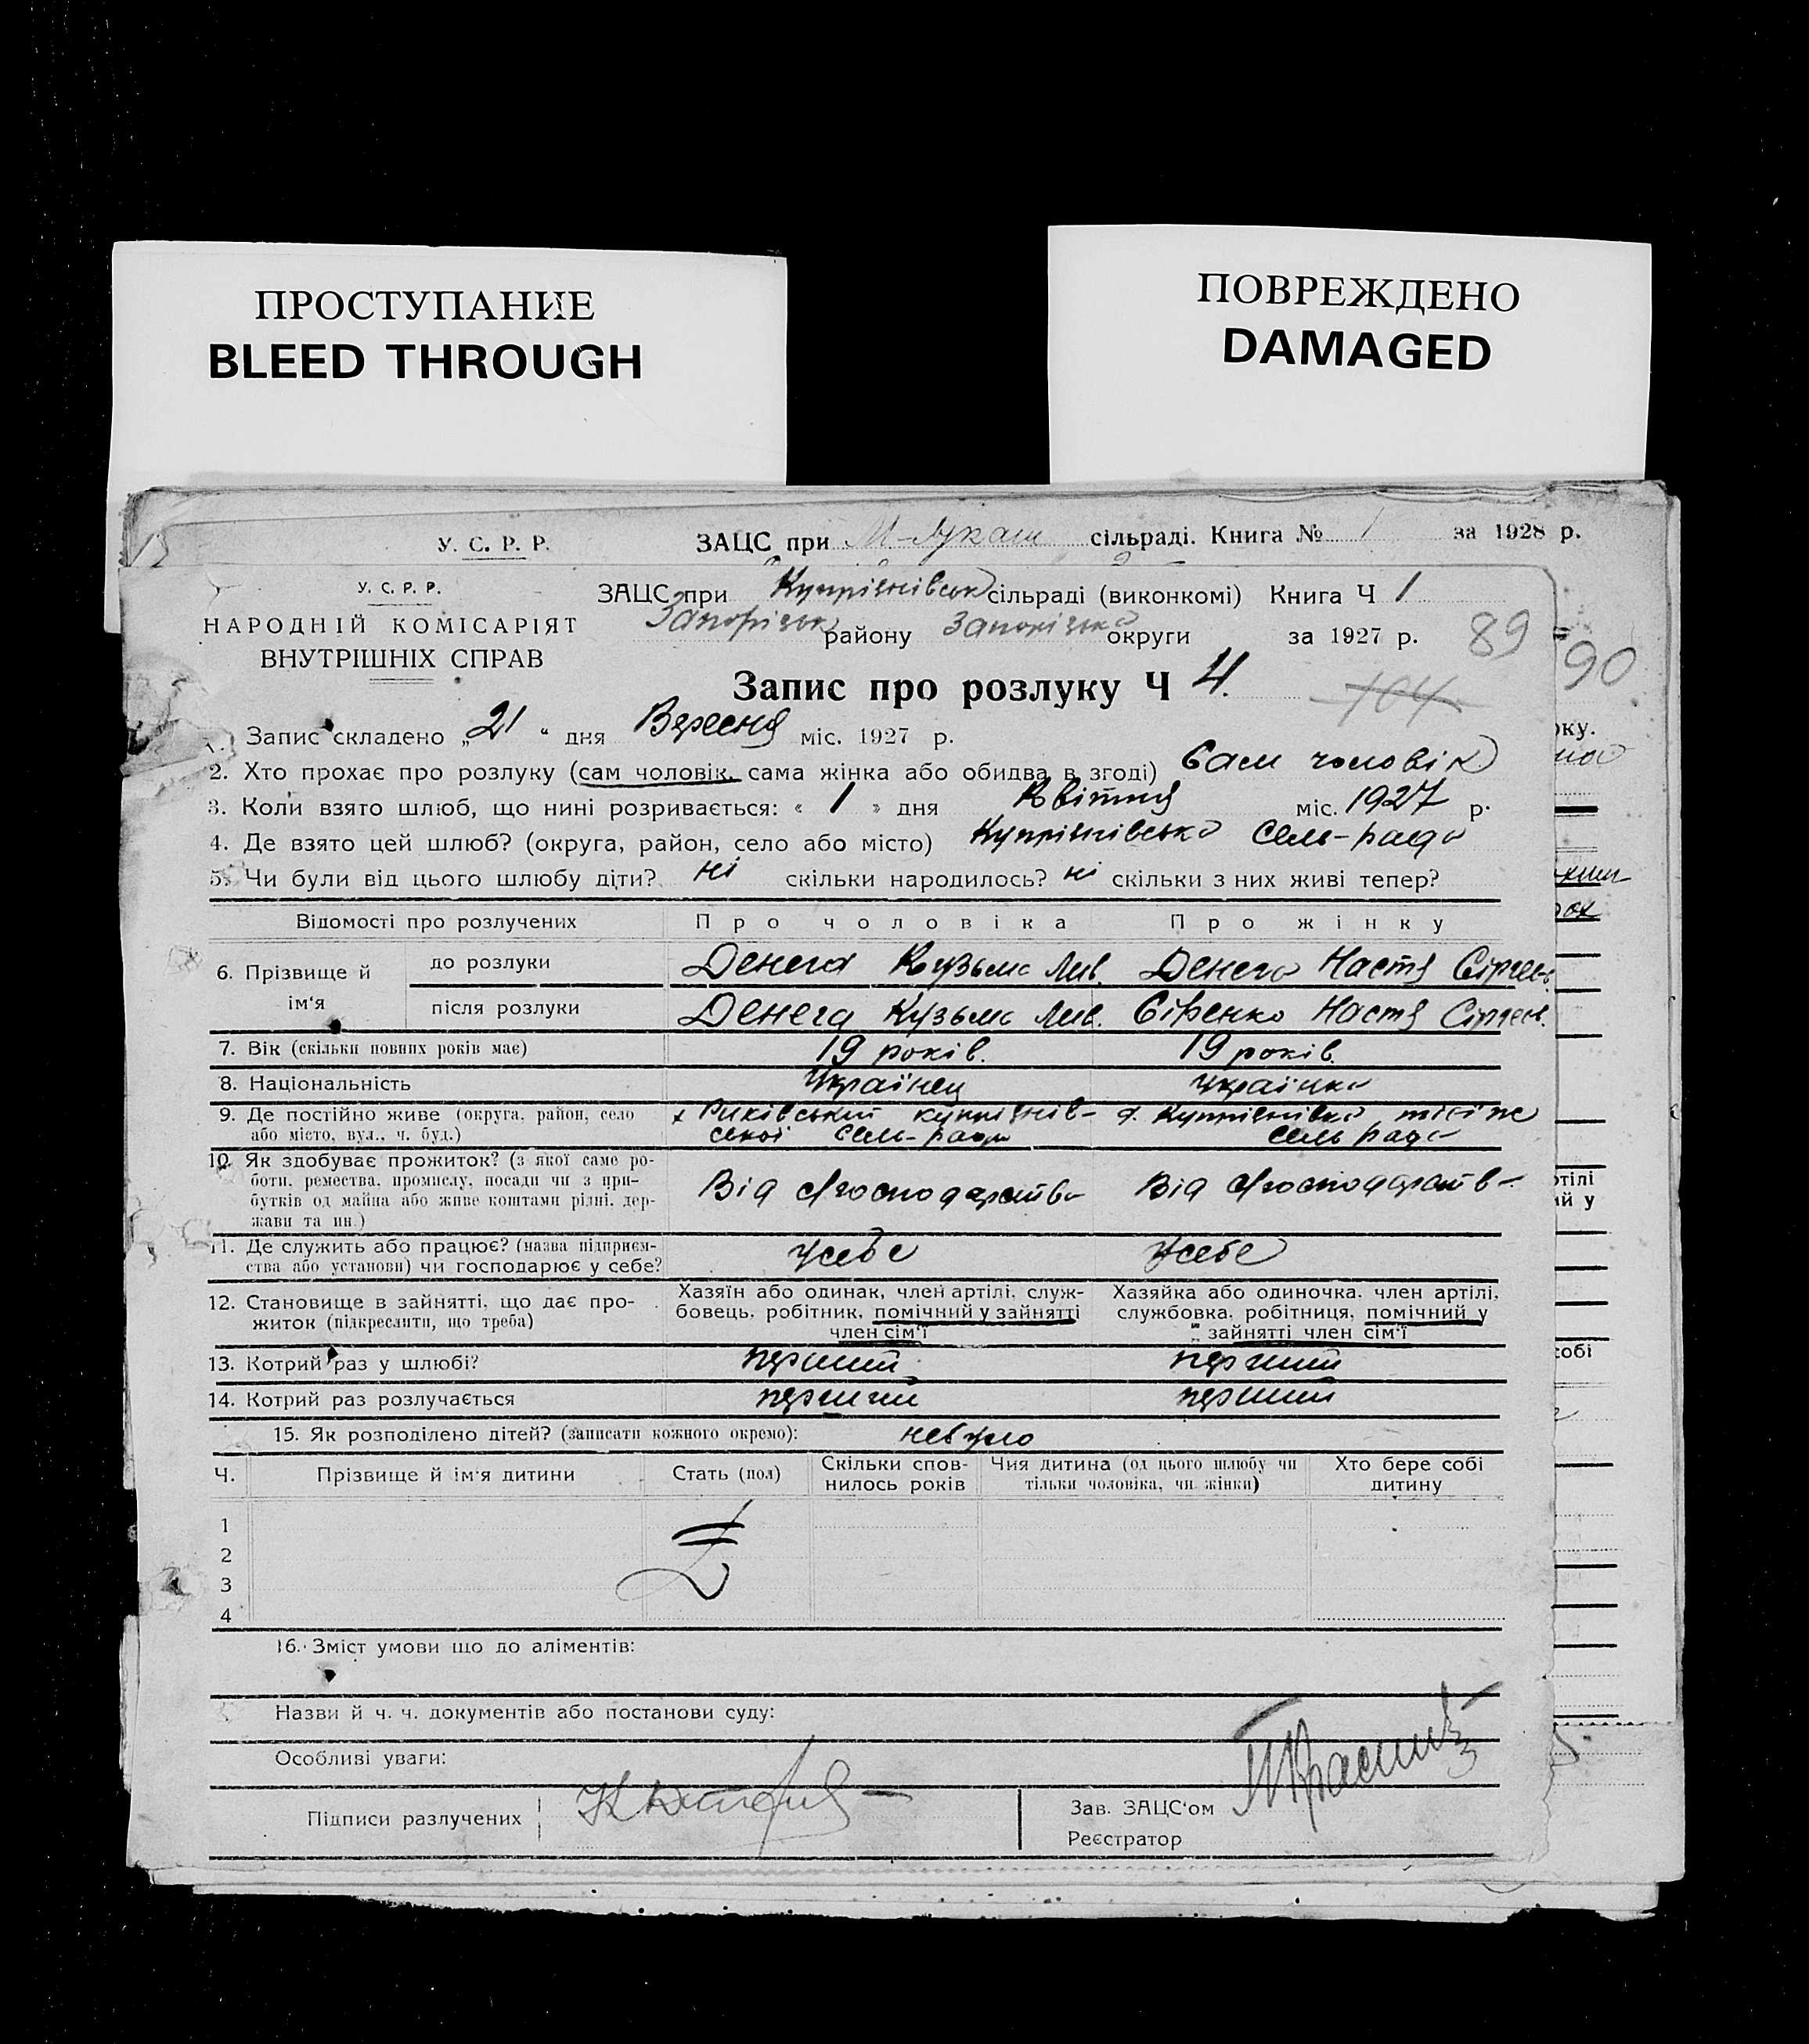 ПРОСТУПАНИЕ
BLEED THROUGH
ПОВРЕЖДЕНО
DAMAGED
У. С. Р. Р. ЗАЦС при М-Лукаш сільраді. Книга № 1 за 1928 р.
У. С. Р. Р.
НАРОДНІЙ КОМІСАРІЯТ
ВНУТРІШНІХ СПРАВ
ЗАЦС при Купріянівськ сільраді (виконкомі) Книга Ч 1
Запорізьк району Запорізько округи за 1927 р. 89
90
Запис про розлуку Ч 4. 104
1. Запис складено „21“ дня Вересня міс. 1927 р.
2. Хто прохає про розлуку (сам чоловік, сама жінка або обидва в згоді) Сам чоловік
3. Коли взято шлюб, що нині розривається: « 1 » дня Квітня міс. 1927 р.
4. Де взято цей шлюб? (округа, район, село або місто) Купріянівська Сель-рада
5. Чи були від цього шлюбу діти? ні скільки народилось? ні скільки з них живі тепер?
Відомості про розлучених Про чоловіка Про жінку
6. Прізвище й ім'я до розлуки Денега Кузьма Лив. Денега Настя Сіргеев.
після розлуки Денега Кузьма Лив. Сіренко Настя Сіргеев.
7. Вік (скільки повних років має) 19 років. 19 років.
8. Національність Українец Українка
9. Де постійно живе (округа, район, село х Купріянів- с. Купріянівка тієї ж
або місто, вул., ч. буд.) ської Сель-ради Сель рада
10. Як здобуває прожиток? (з якої саме ро-
боти, ремества, промислу, посади чи з при-
бутків од майна або живе коштами рідні, дер-
жави та ин.)
Від с/господарства Від с/господарства
11. Де служить або працює? (назва підприєм- усебе усебе
ства або установи) чи господарює у себе?
12. Становище в зайнятті, що дає про-
житок (підкреслити, що треба)
Хазяїн або одинак, член артілі, служ-
бовець, робітник, помічний у зайнятті
член сім'ї
Хазяйка або одиночка, член артілі,
службовка, робітниця, помічний у
зайнятті член сім'ї
13. Котрий раз у шлюбі? перший перший
14. Котрий раз розлучається перший перший
15. Як розподілено дітей? (записати кожного окремо): небуло
Ч. Прізвище й ім'я дитини Стать (пол) Скільки спов-
нилось років Чия дитина (од цього шлюбу чи
тільки чоловіка, чи жінки) Хто бере собі
дитину
1
2
3
4
16. Зміст умови що до аліментів:
Назви й ч. ч. документів або постанови суду:
Особливі уваги:
Підписи разлучених Зав. ЗАЦС'ом
Реєстратор